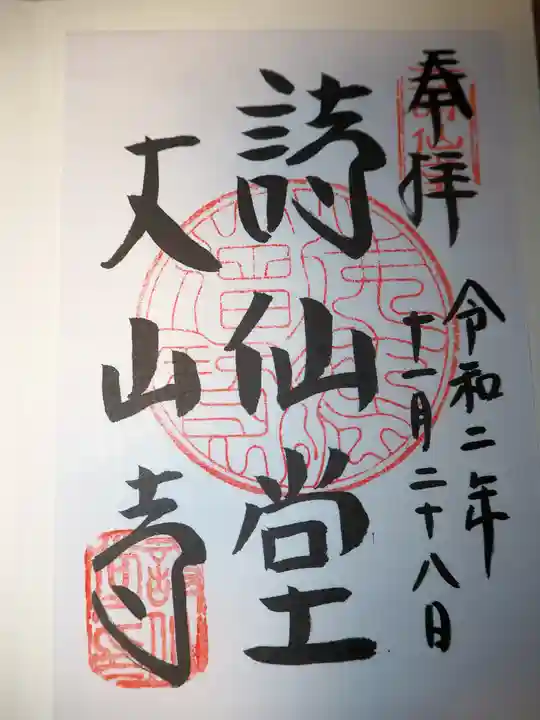 奉拝
令和二年
十一月二十八日
詩仙堂
丈山寺